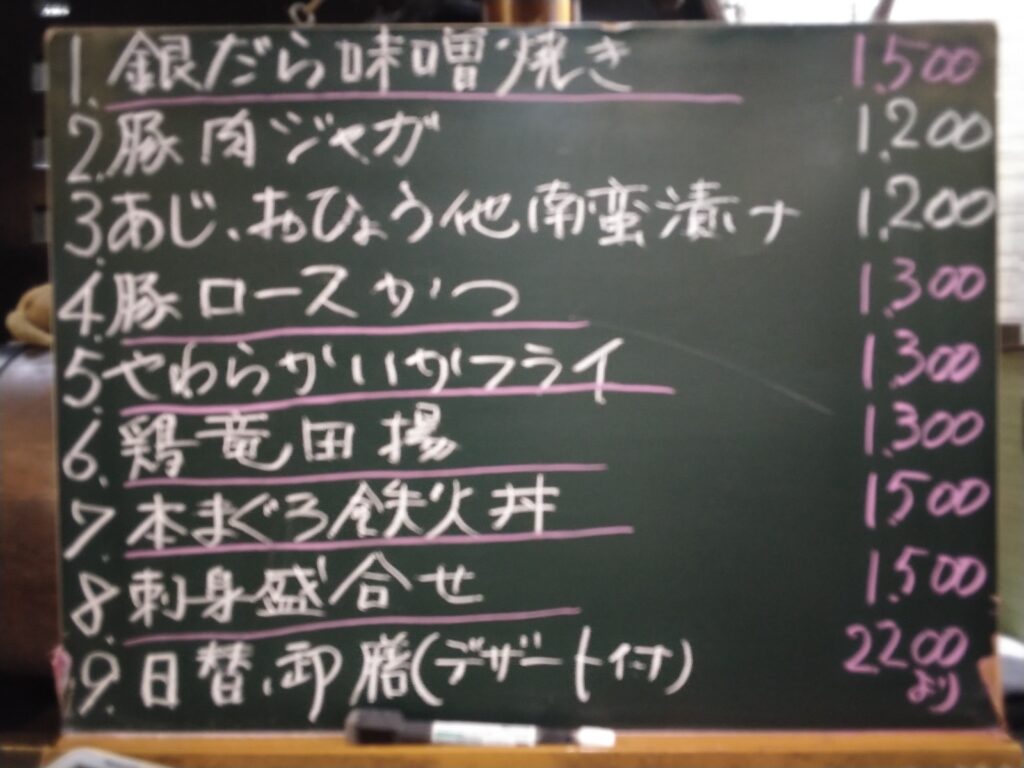 1. 銀だら味噌焼き 1,500
2. 豚肉ジャガ 1,200
3. あじ、おひょう他南蛮漬ナ 1,200
4. 豚ロースかつ 1,300
5. やわらかいかフライ 1,300
6. 鶏竜田揚 1,300
7. 本まぐろ鉄火丼 1,500
8. 刺身盛合せ 1,500
9. 日替、御膳(デザート付) 2200
より